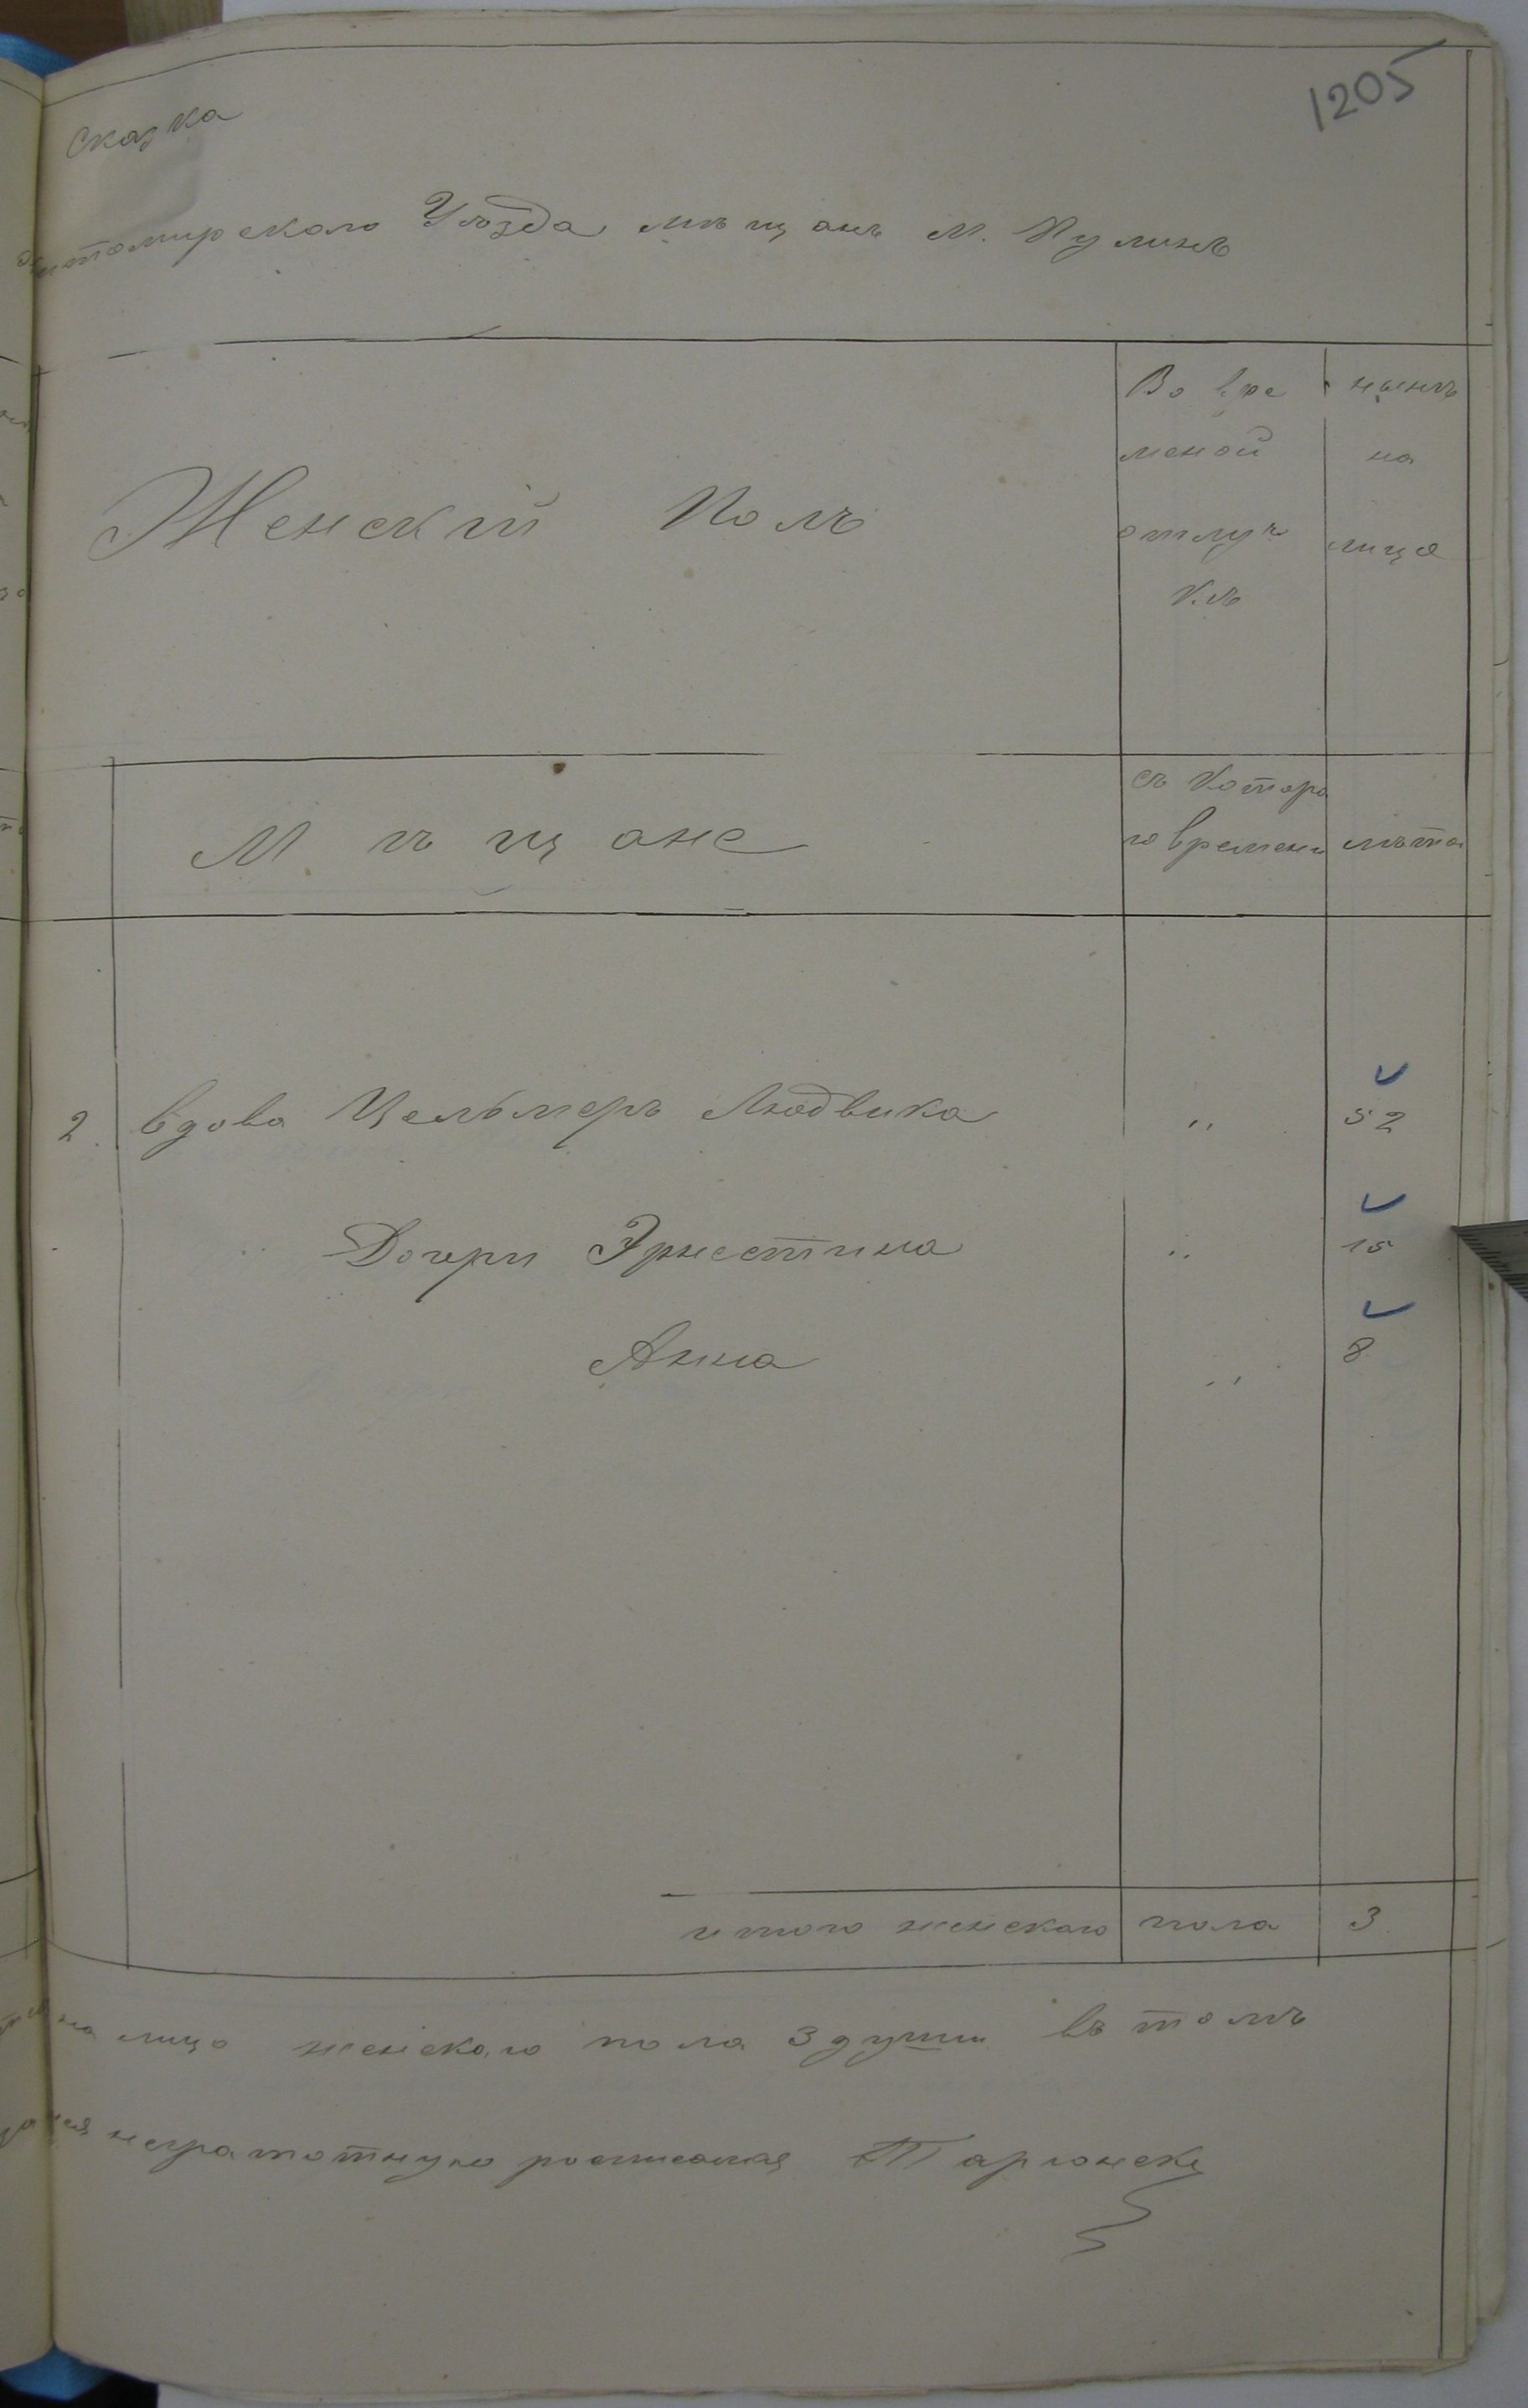 1205
Сказка
Житомирскаго Уѣзда мѣщанъ м. Пулинъ
Женскій Полъ
Во вре
меной
отлуч
кѣ
нынѣ
на
лицо
Мѣщане
съ котора
го времени
лѣта
2. вдова Цельмеръ Людвика " 52
Дочери Эрнестина " 15
Анна " 8
итого женскаго пола 3
на лицо женскаго пола 3 души въ томъ
неграмотную росписался